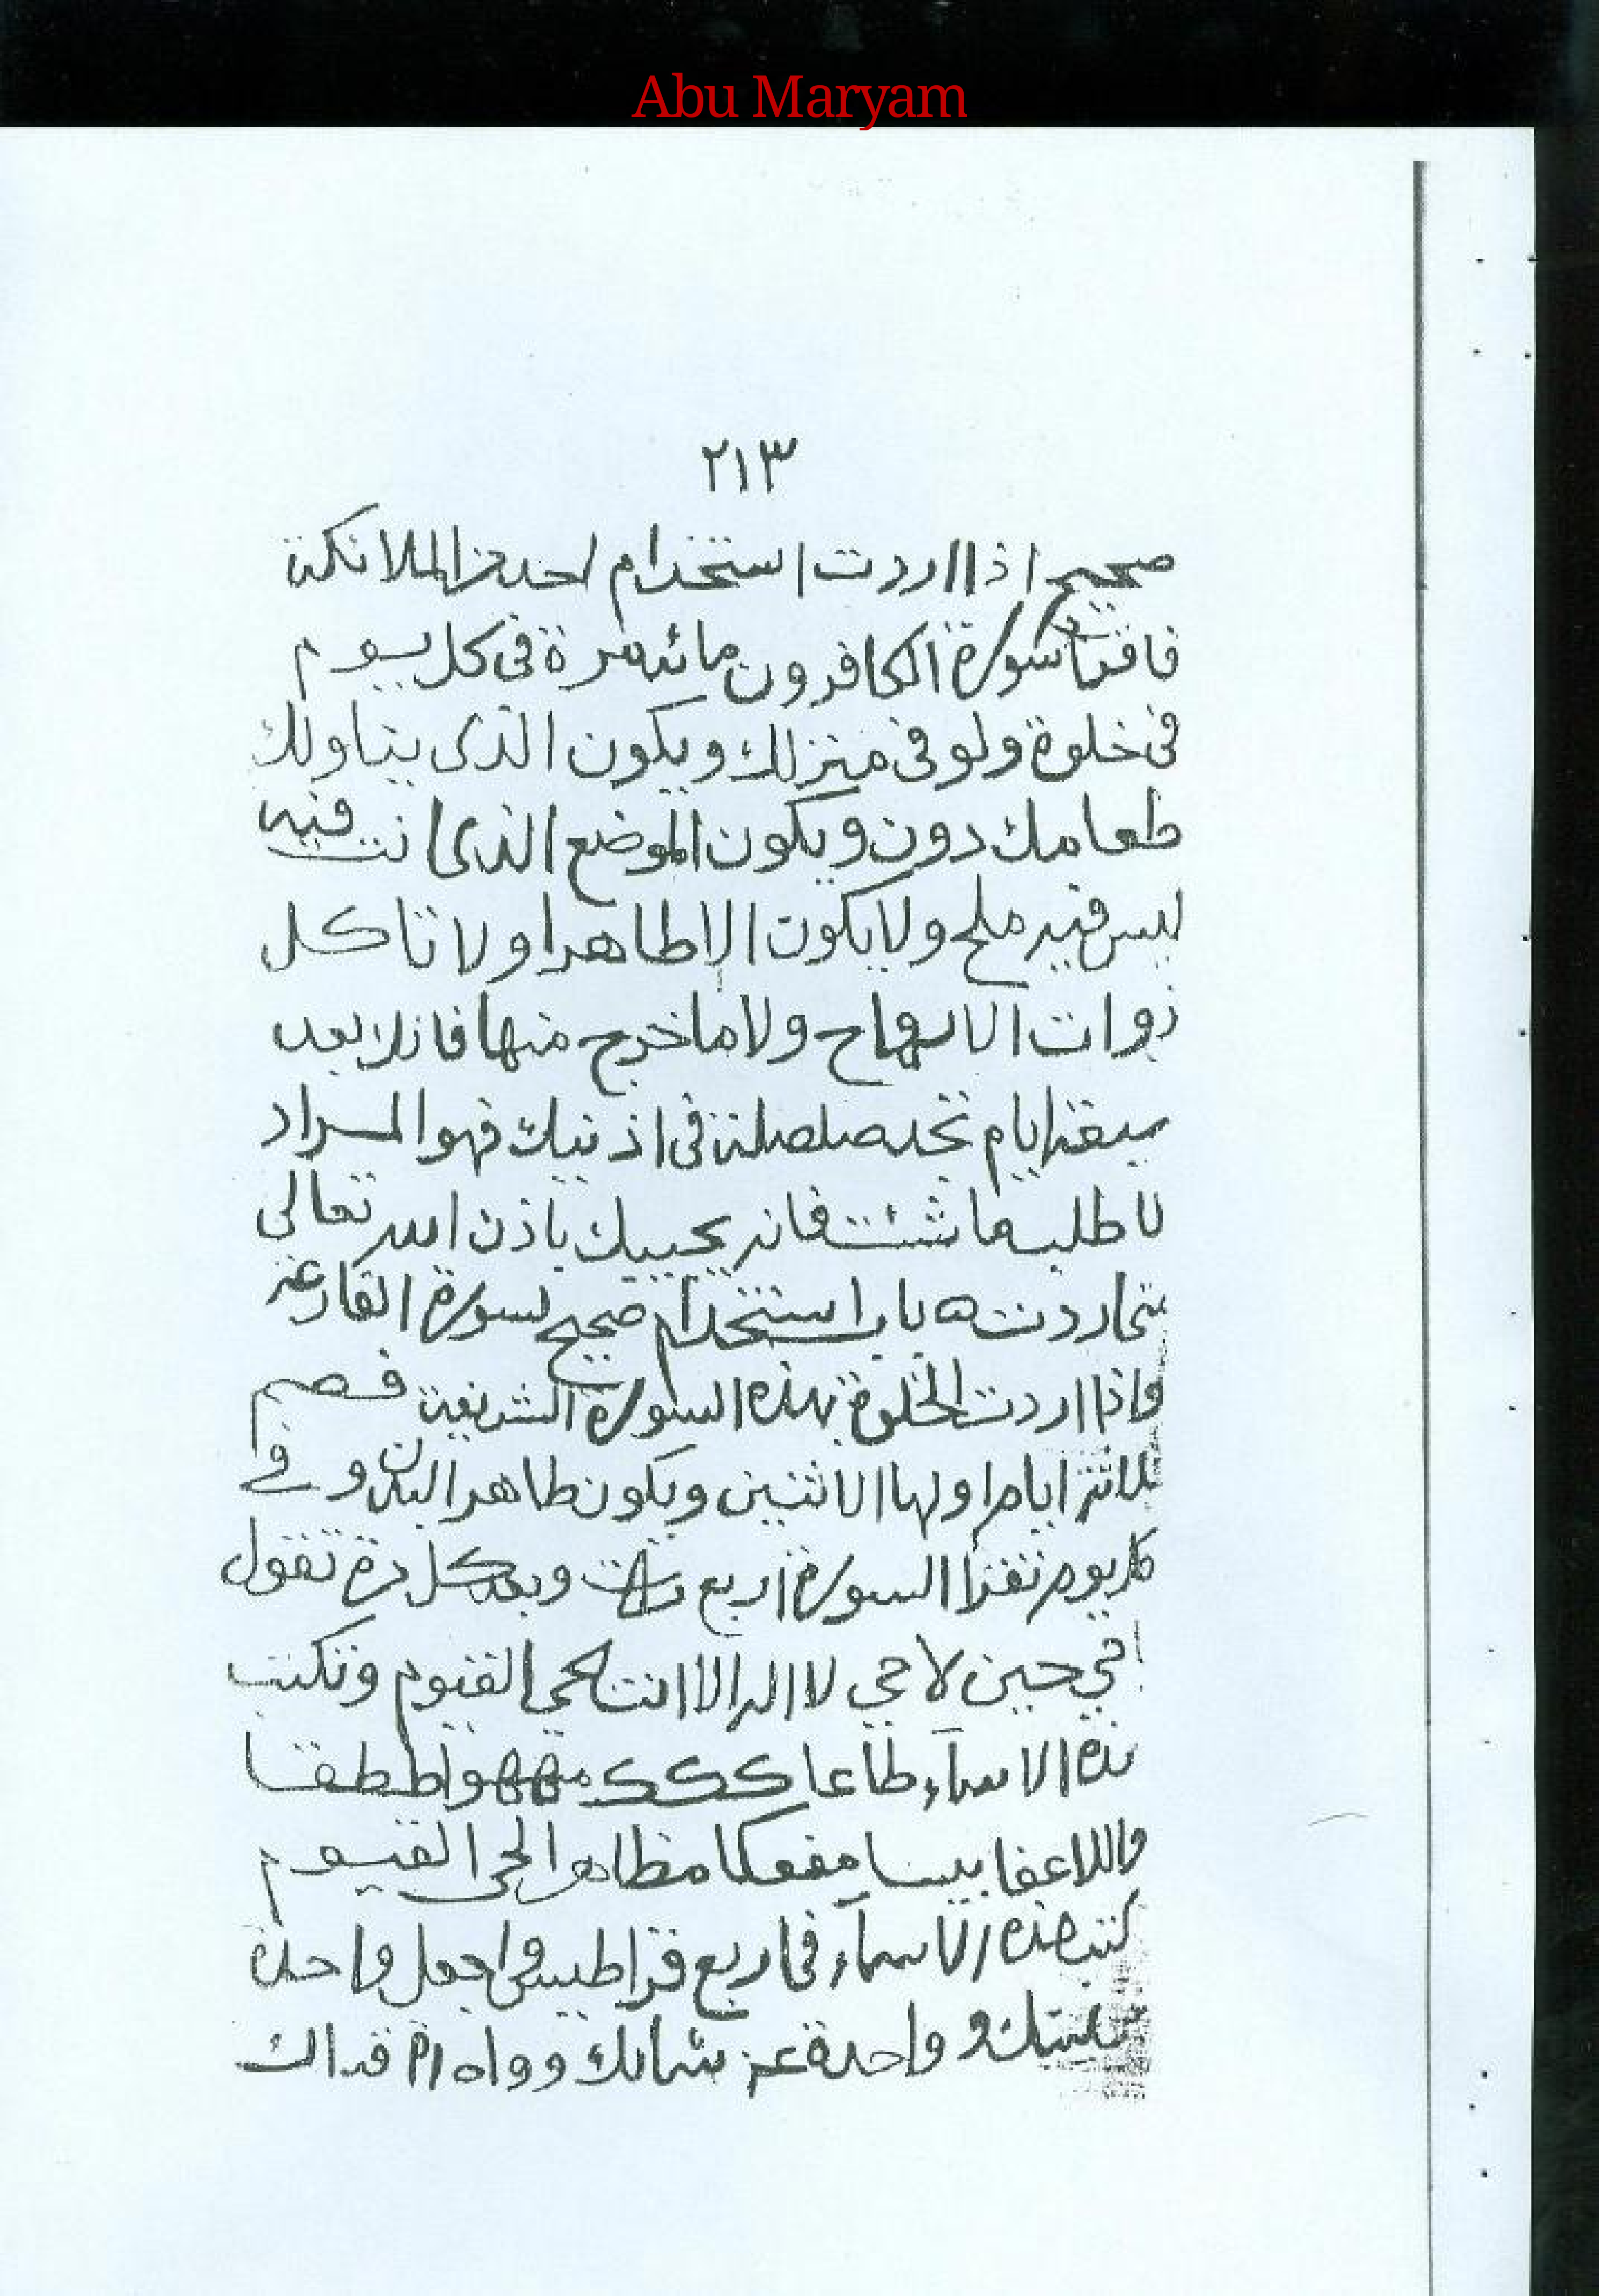 Abu Maryam
٢١٣
صحيح اذا اردت استخدام احد من الملائكة
فاقرأ سورة الكافرون مائه مرة فى كل يوم
فى خلوة ولو فى منزلك ويكون الذى يناولك
طعامك دون ويكون الموضع الذى انت فيه
ليس فيه ملح ولا يكون الا طاهرا ولا تاكل
ذوات الارواح ولا ما خرج منها فانك بعد
سبعة ايام تجد صلصلة فى اذنيك فهو المراد
لا طلب ما شئت فانه يجيبك باذن الله تعالى
اردت ه باب استخدام صحيح لسورة القارعة
واذا اردت الخلوة بهذه السورة الشريفة فصم
ثلاثة ايام اولها الاثنين ويكون طاهر البدن وفى
كل يوم تقرا السورة اربع مرات وبعد كل مرة تقول
حين لا حي لا اله الا انت الحي القيوم وتكتب
الاسماء طاعا
مظاهر الحى القيوم
هذه الاسماء فى اربع قراطيس واجعل واحدة
وواحدة عن شمالك